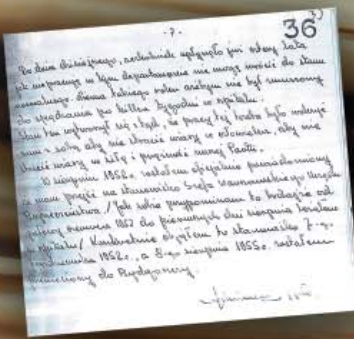 - 7 -
36
Do dnia dzisiejszego, aczkolwiek upłynęło już cztery lata
jak nie pracuję w tym departamencie nie mogę wrócić do stanu
normalnego. Niema takiego roku żebym nie był zmuszony
do spędzania po kilka tygodni w szpitalu.
Stan ten wytworzył się z tąd, że przez te lata było walczyć
sam z sobą aby nie stracić wiary w człowieka, aby nie
stracić wiary w siłę i przyszłość naszej Partii.
W sierpniu 1952r. zostałem oficjalnie powiadomiony
że mam przejść na stanowisko Szefa Warszawskiego Urzędu
Bezpieczeństwa /jak sobie przypominam to
czerwca 1952 do pierwszych dni sierpnia leżałem
w szpitalu/ Konkretnie objąłem to stanowisko 7-go
października 1952r., a 8-go sierpnia 1955r. zostałem
przeniesiony do Bydgoszczy.